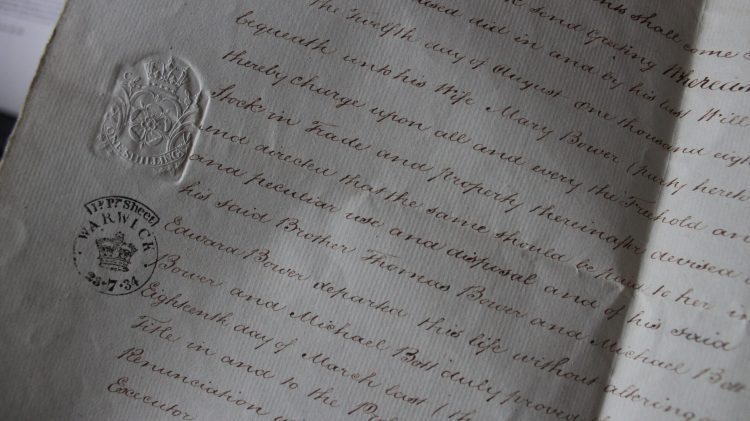 shall come
send Greeting Whereas
did in and by his last Will
the Twelfth day of August One thousand eigh
bequeath unto his Wife Mary Bower (party hereto
thereby charge upon all and every the Freehold and
Stock in Trade and property thereinafter devised
and directed that the same should be paid to her in
and peculiar use and disposal and of his said
his said Brother Thomas Bower and Michael Bott
Edward Bower departed this life without altering
Bower and Michael Bott duly proved th
Eighteenth day of March last (th
Title in and to the
Renunciation
Executor
ONE SHILLING
Sheet
WARWICK
23·7·34